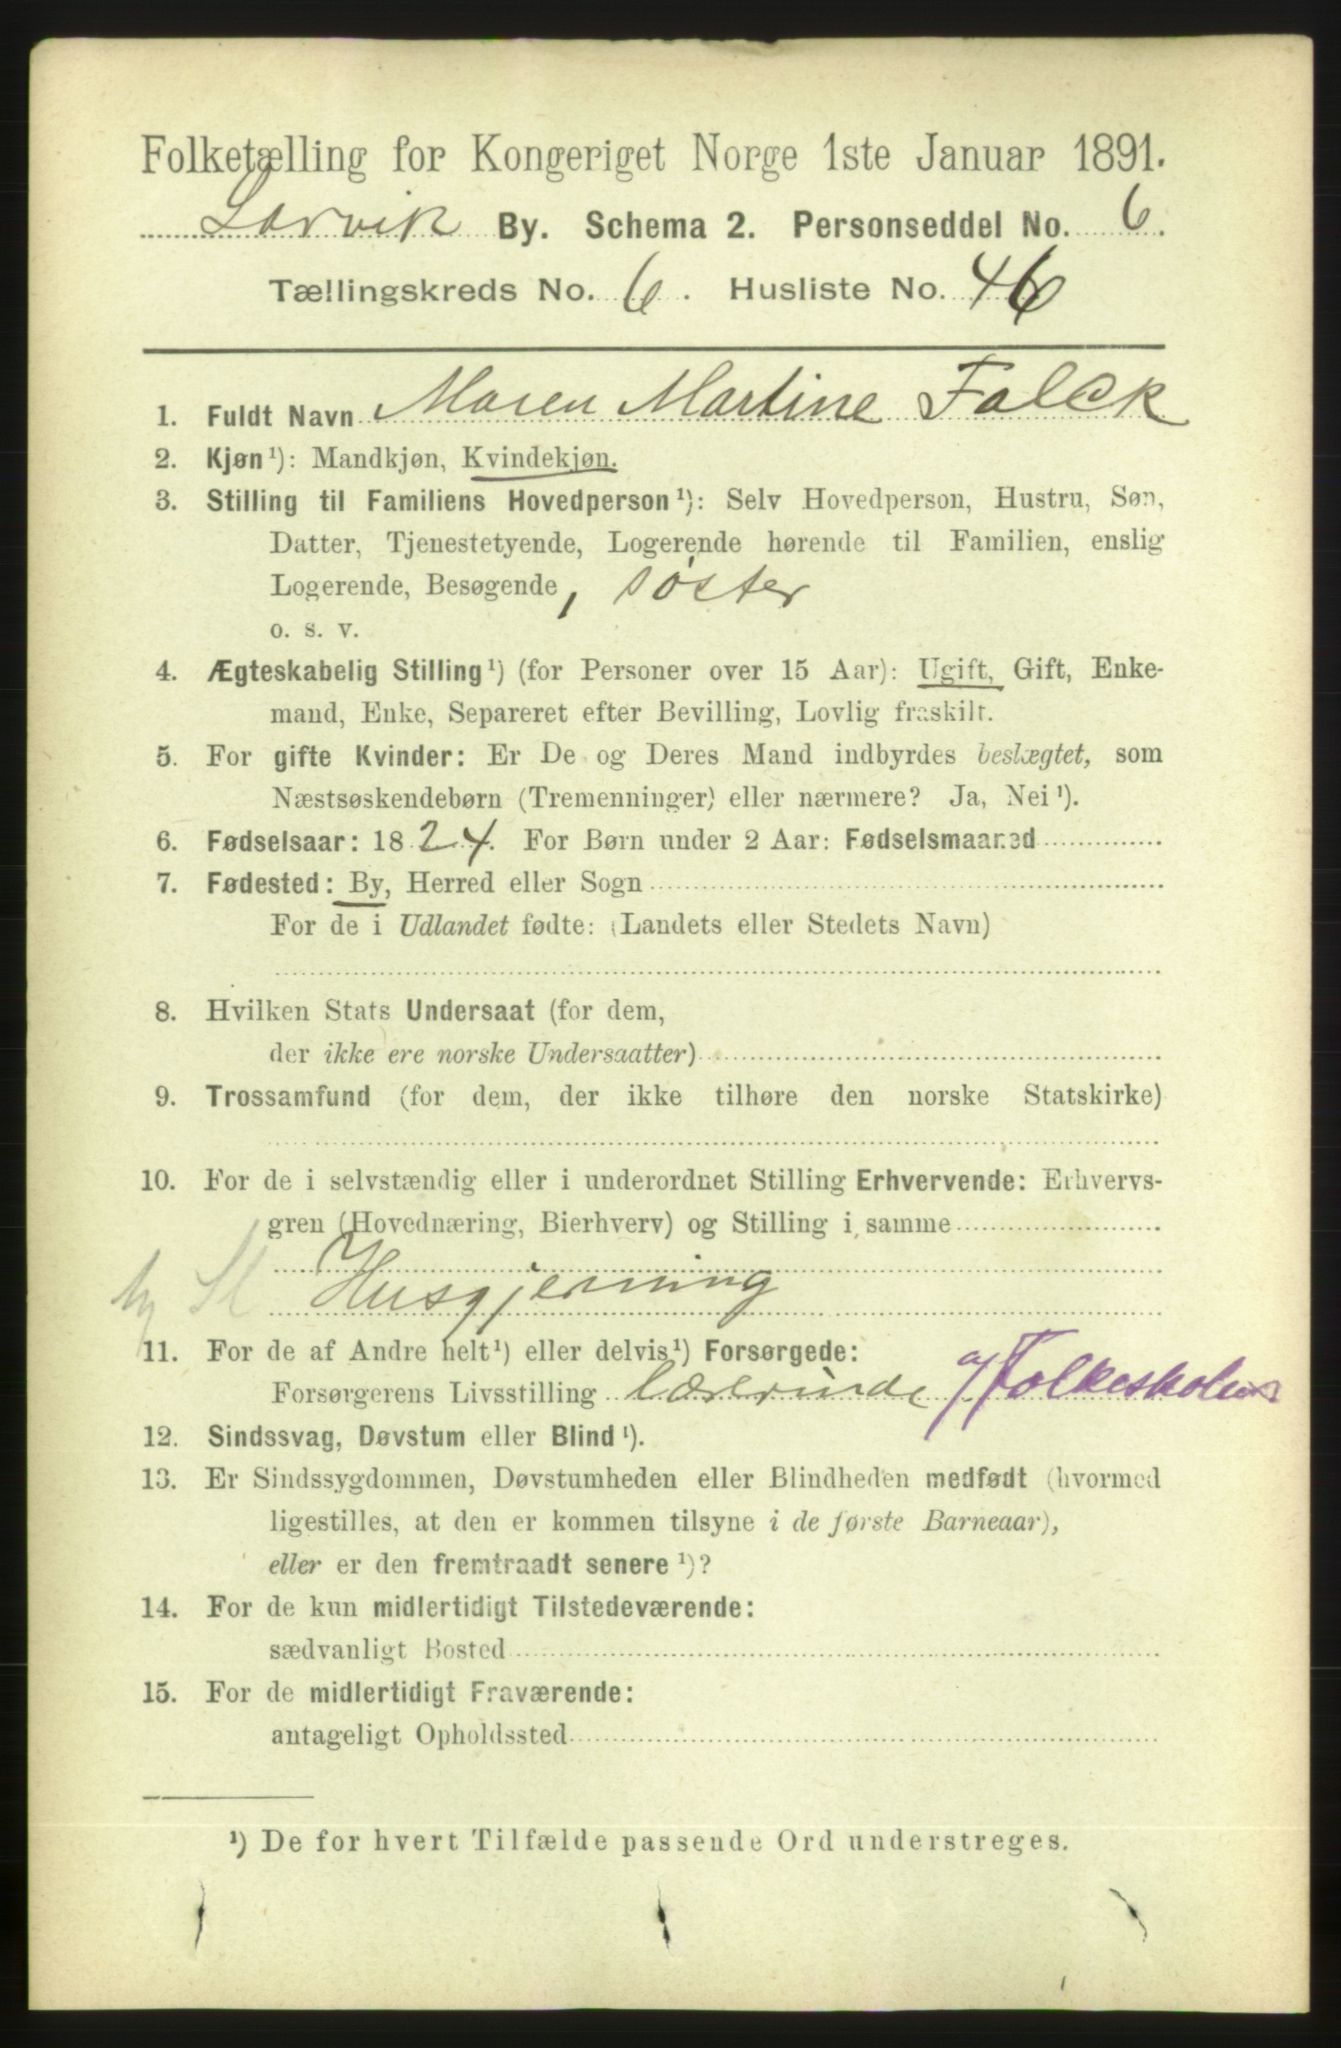 Folketælling for Kongeriget Norge 1ste Januar 1891.
Larvik By. Schema 2. Personseddel No. 6.
Tællingskreds No. 6. Husliste No. 46
1. Fuldt Navn Maren Martine Falck
2. Kjøn¹): Mandkjøn, Kvindekjøn.
3. Stilling til Familiens Hovedperson¹): Selv Hovedperson, Hustru, Søn,
Datter, Tjenestetyende, Logerende hørende til Familien, enslig
Logerende, Besøgende, søster
o. s. v.
4. Ægteskabelig Stilling¹) (for Personer over 15 Aar): Ugift, Gift, Enke-
mand, Enke, Separeret efter Bevilling, Lovlig fraskilt.
5. For gifte Kvinder: Er De og Deres Mand indbyrdes beslægtet, som
Næstsøskendebørn (Tremenninger) eller nærmere? Ja, Nei¹).
6. Fødselsaar: 1824. For Børn under 2 Aar: Fødselsmaaned
7. Fødested: By, Herred eller Sogn
For de i Udlandet fødte: (Landets eller Stedets Navn)
8. Hvilken Stats Undersaat (for dem,
der ikke ere norske Undersaatter)
9. Trossamfund (for dem, der ikke tilhøre den norske Statskirke)
10. For de i selvstændig eller i underordnet Stilling Erhvervende: Erhvervs-
gren (Hovednæring, Bierhverv) og Stilling i samme
Husgjerning
11. For de af Andre helt¹) eller delvis¹) Forsørgede:
Forsørgerens Livsstilling lærerinde a/Folkeskolen
12. Sindssvag, Døvstum eller Blind¹).
13. Er Sindssygdommen, Døvstumheden eller Blindheden medfødt (hvormed
ligestilles, at den er kommen tilsyne i de første Barneaar),
eller er den fremtraadt senere¹)?
14. For de kun midlertidigt Tilstedeværende:
sædvanligt Bosted
15. For de midlertidigt Fraværende:
antageligt Opholdssted
¹) De for hvert Tilfælde passende Ord understreges.